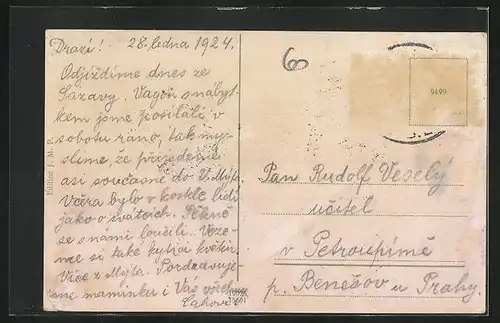 Drazí! 28. ledna 1924.
Odjíždíme dnes ze
Sázavy. Vagón s nábyt-
kem jsme poslali v
sobotu ráno, tak my-
slíme, že přijedeme
asi současně do V. Mýta.
Včera bylo v kostele lidí
jako o svátcích. Pěkně
se s námi loučili. Veze-
me si také kytici květin.
Více z Mýta. Pozdravuje-
me maminku i Vás všechny
6
9499
Edition J. M. P.
Pan Rudolf Veselý
učitel
v Petroupimě
p. Benešov u Prahy.